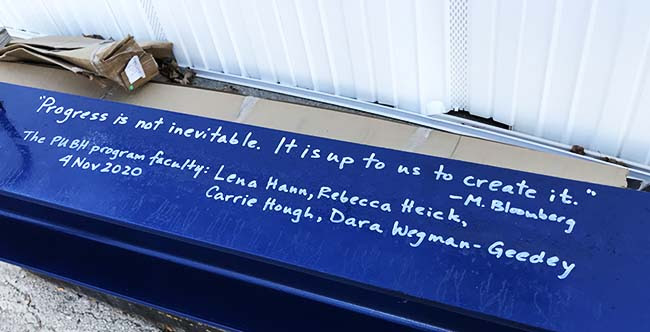 "Progress is not inevitable. It is up to us to create it."
—M. Bloomberg
The PUBH program faculty: Lena Hann, Rebecca Heick,
4 Nov 2020 Carrie Hough, Dara Wegman-Geedey